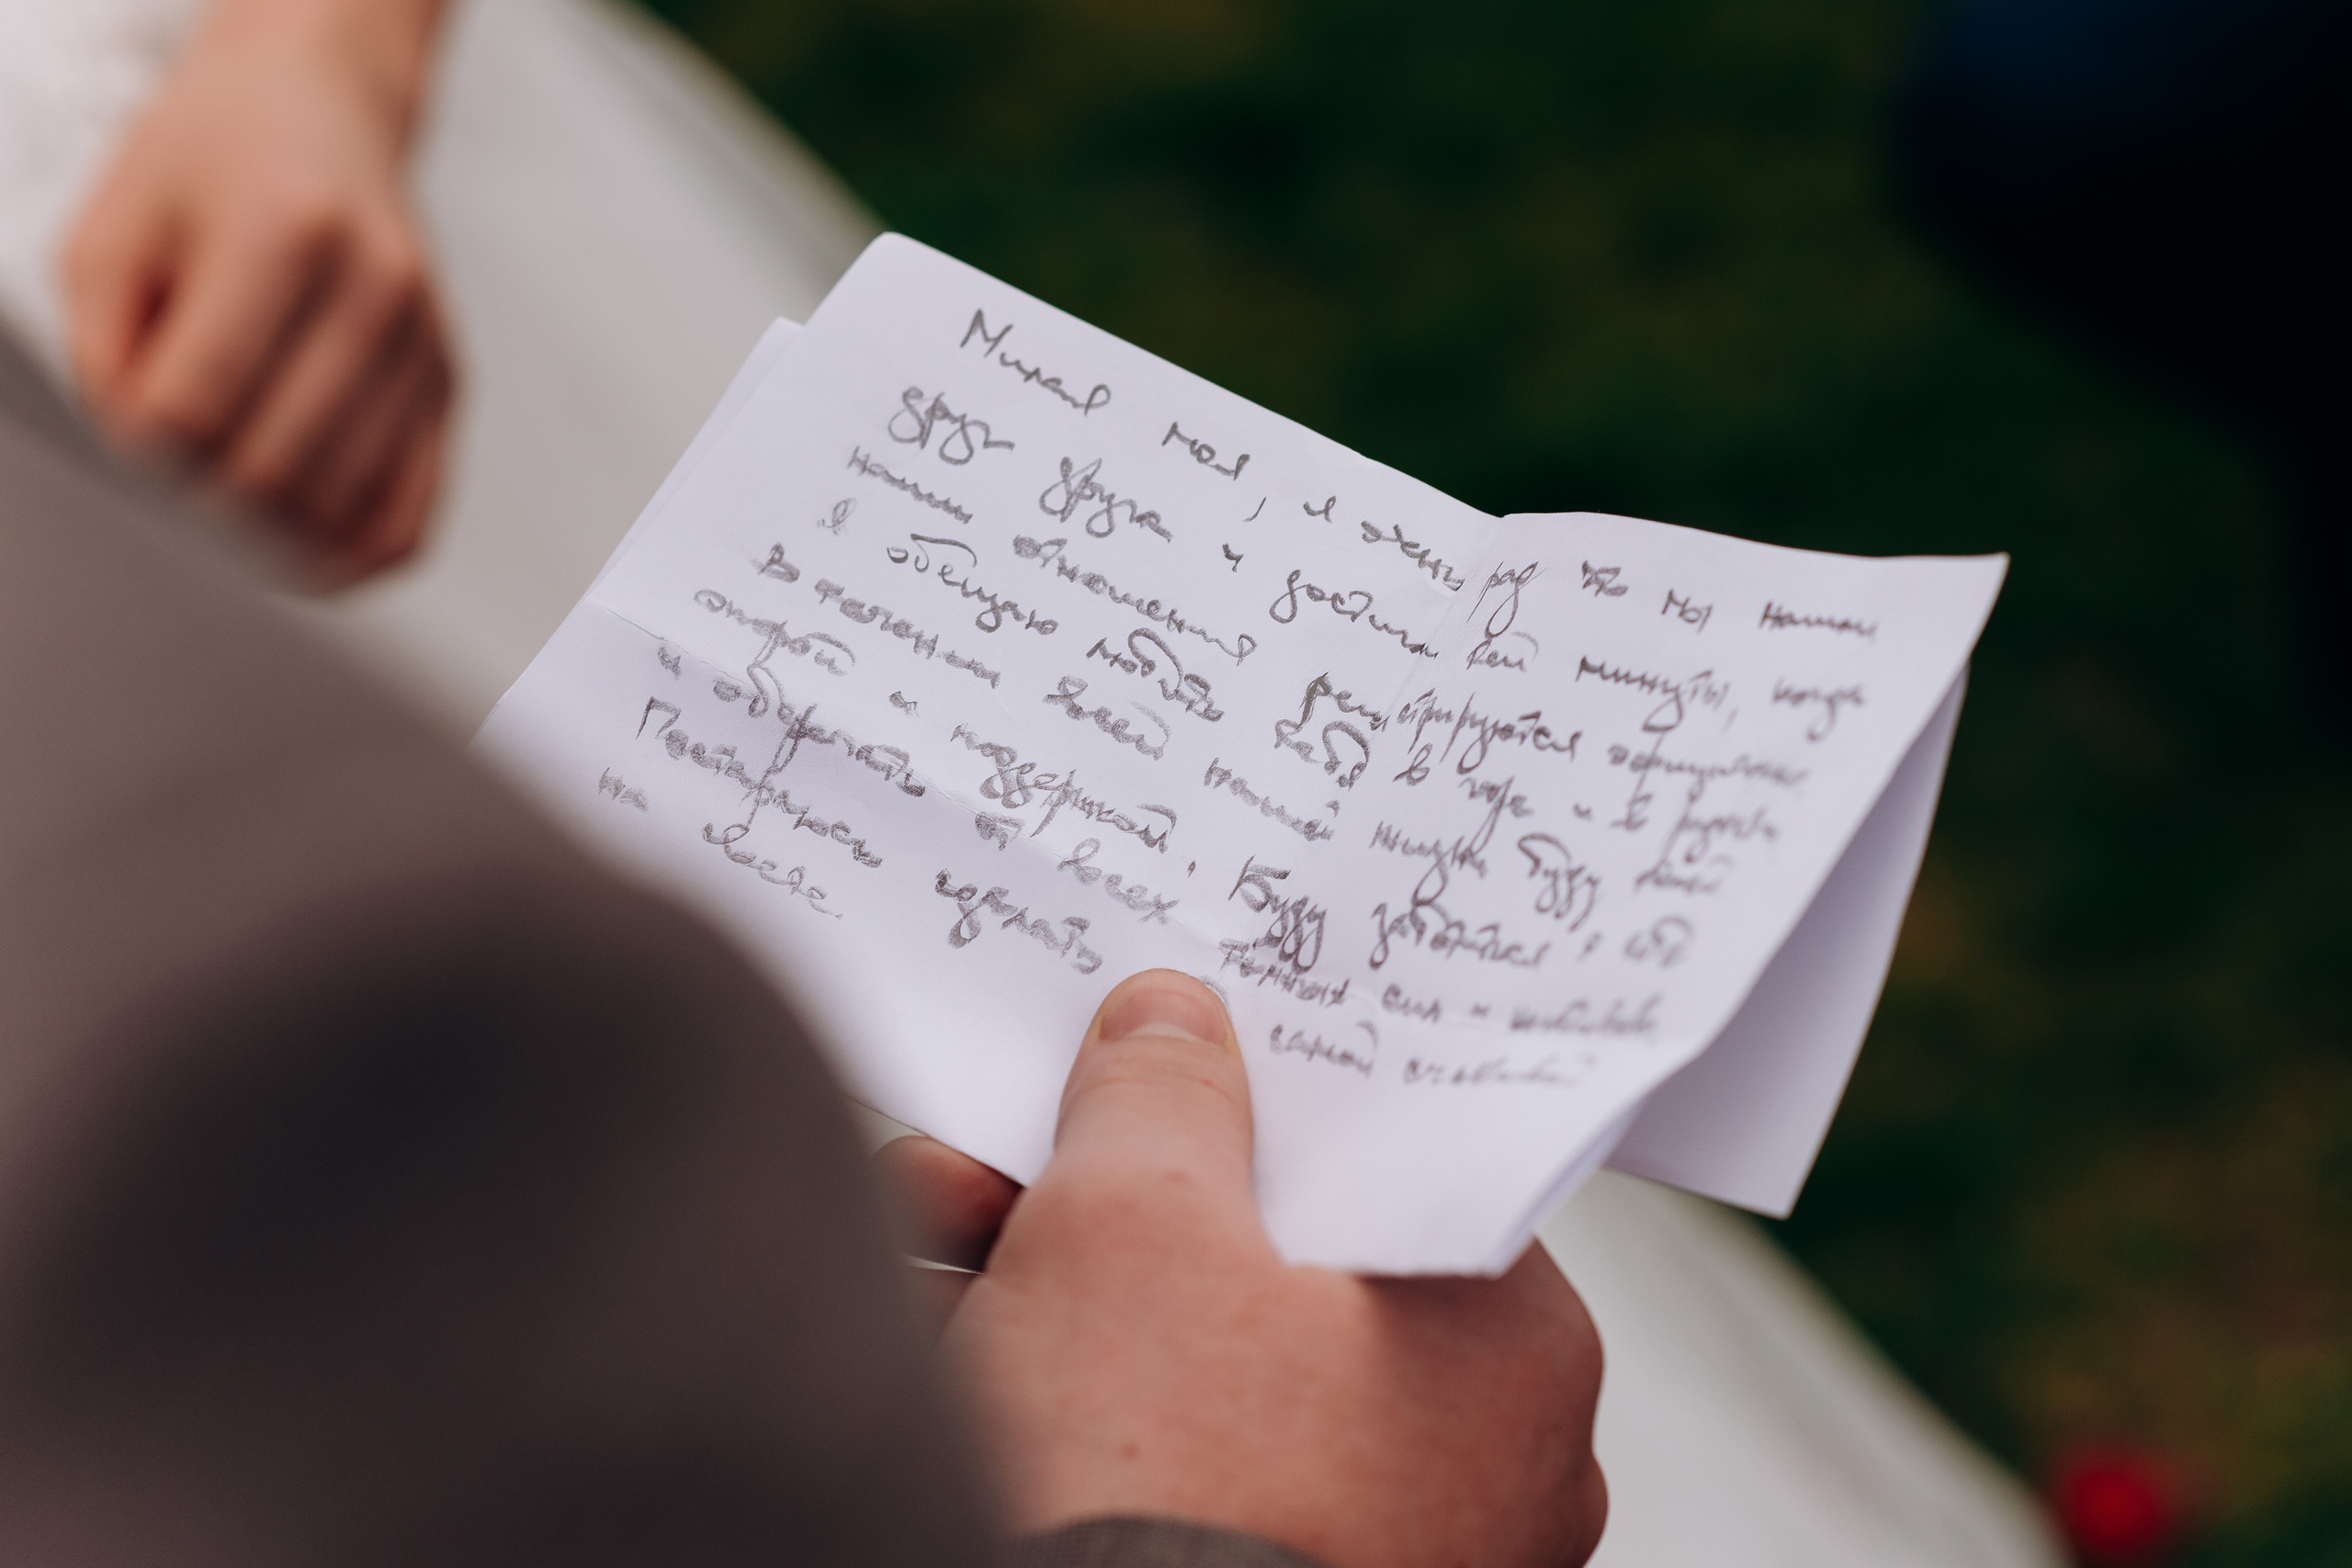 Милая моя, я очень рад что мы нашли
друг друга и достигли той минуты, когда
наши отношения регистрируются официально.
Я обещаю любить тебя в горе и в радости
В течении всей нашей жизни буду твоей
опорой и поддержкой. Буду заботится,
и оберегать от всех темных сил и
Постараюсь сделать самой счастливой
на свете.